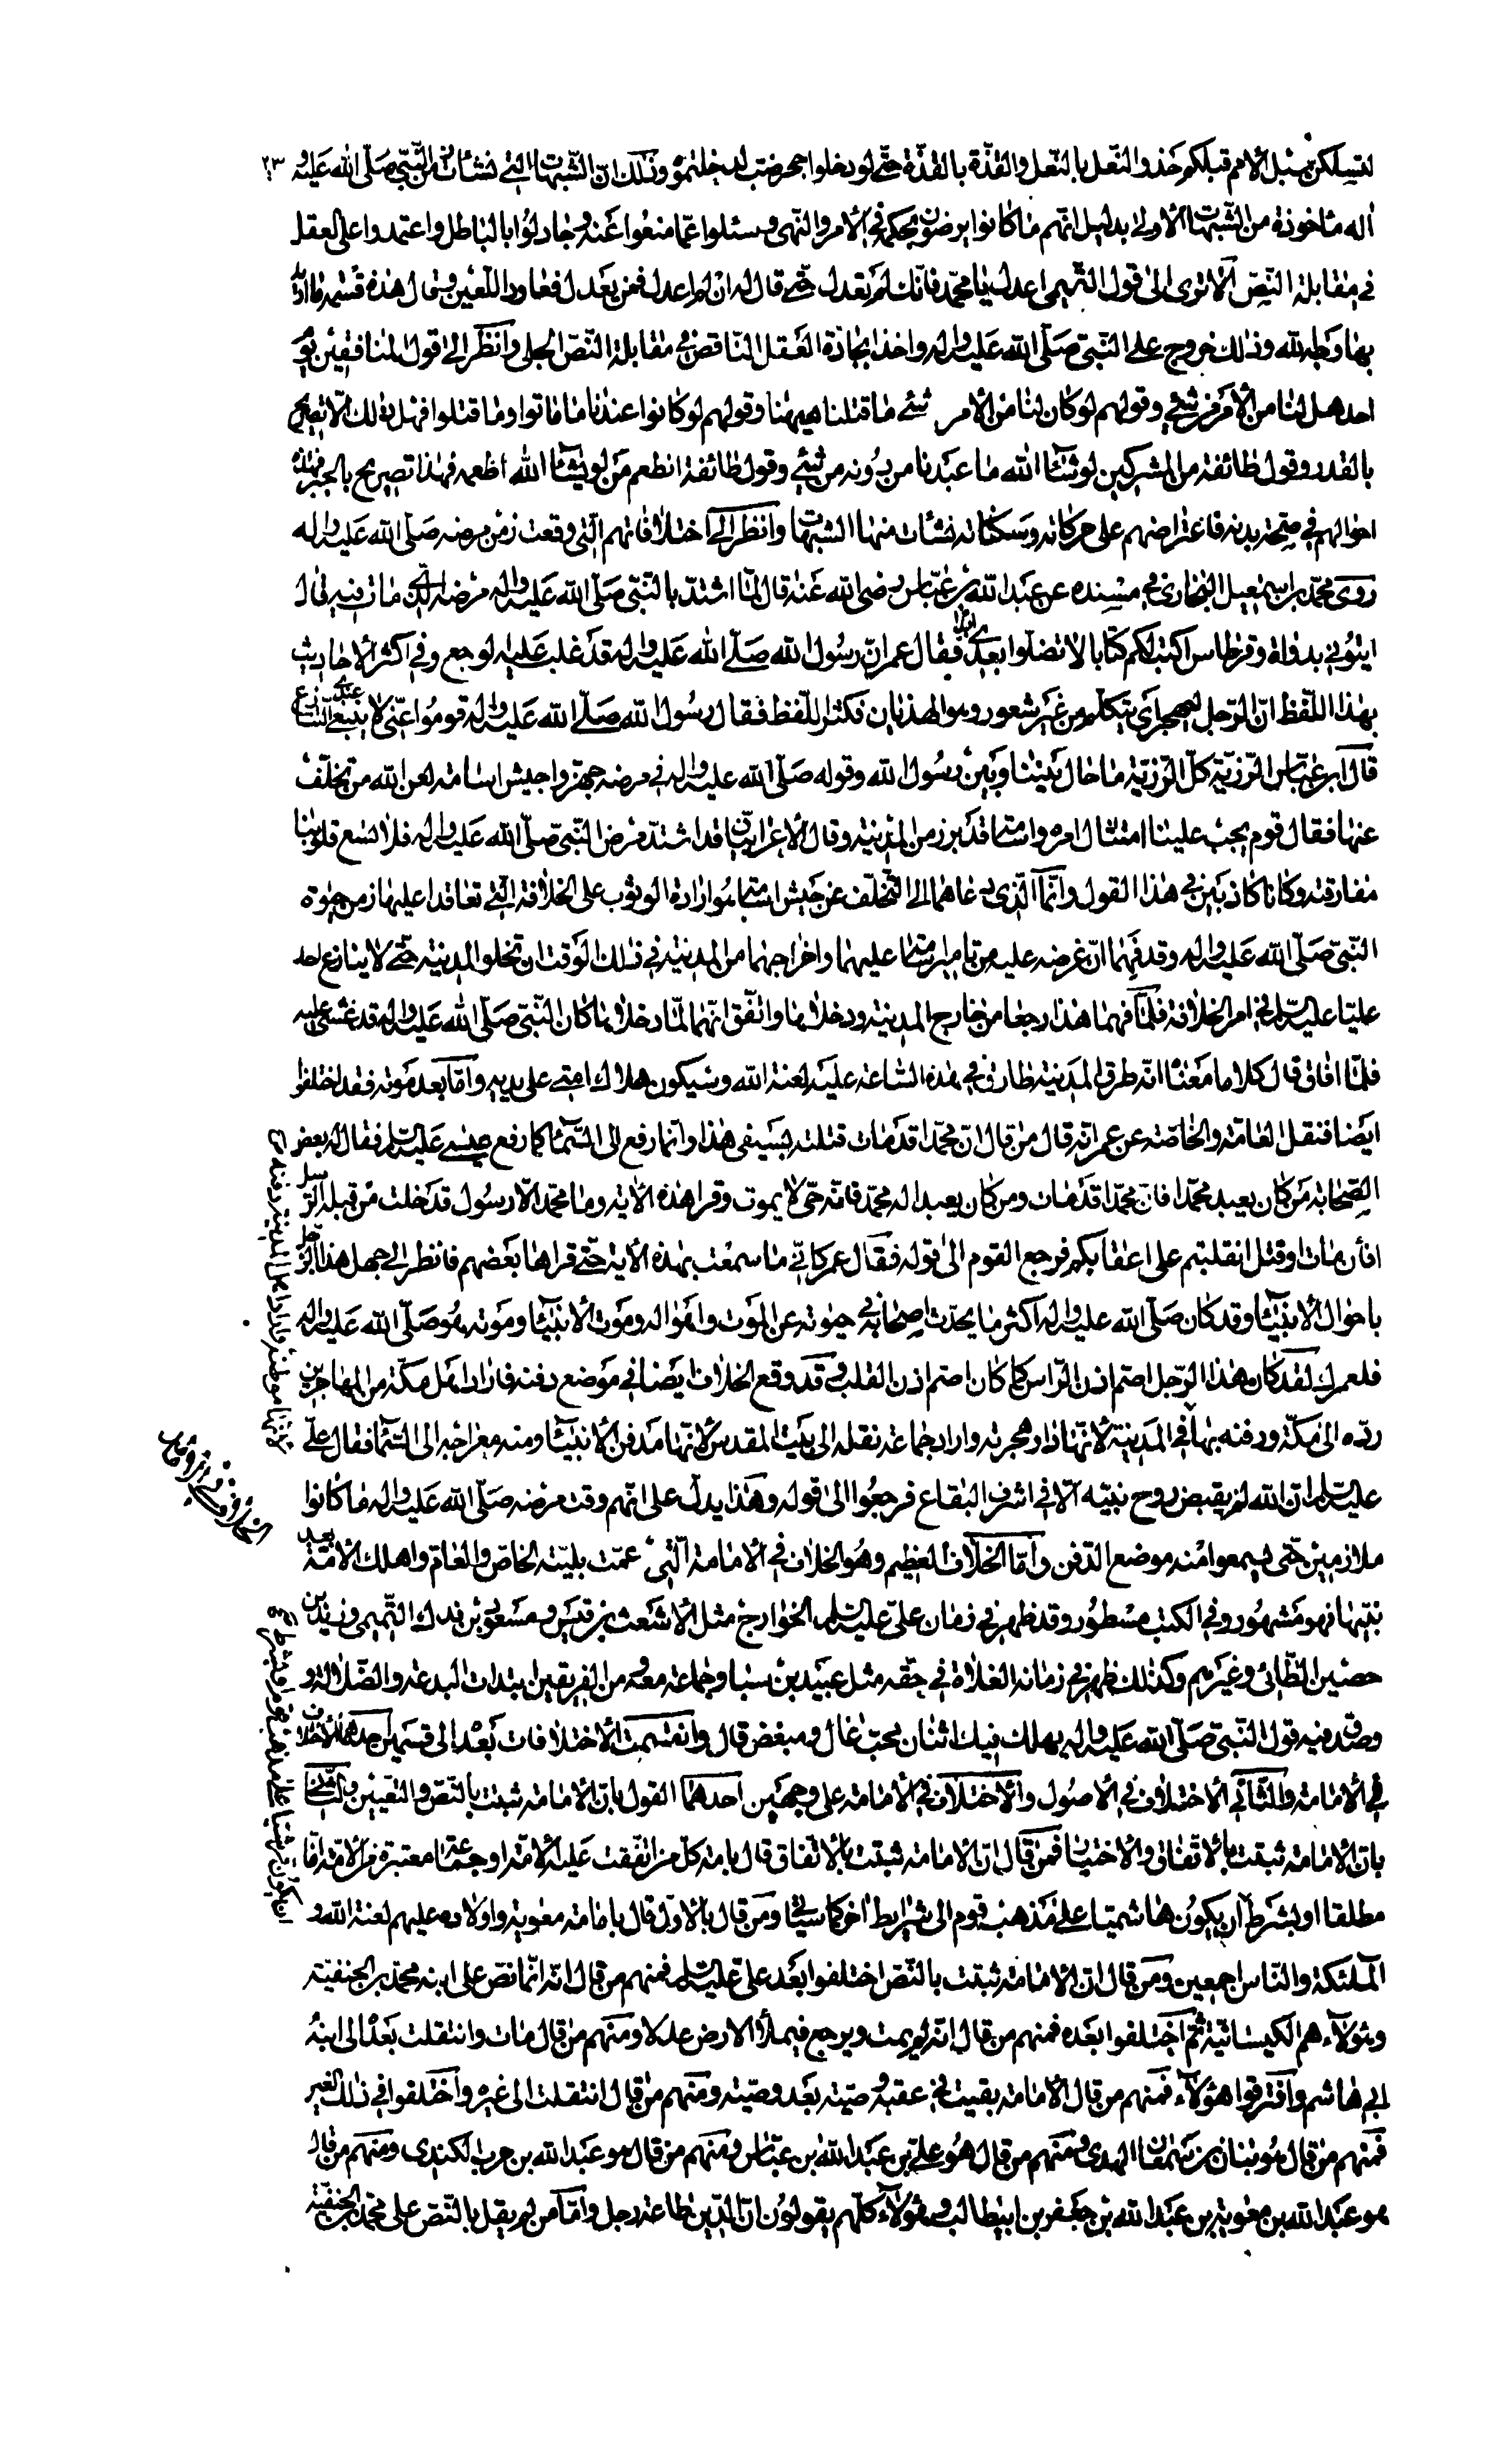 لتسلكن سبل الأمم قبلكم حذو النّعل بالنّعل والقذّة بالقذّة حتّى لو دخلوا جحر ضبّ لدخلتموه وذلك انّ الشّبهات الّتي نشأت زمن النّبيّ صلّى الله عليه و ٢٣
اله مأخوذة من الشّبهات الأولى بدليل انّهم ما كانوا يرضون بحكمه في الأمر والنّهي وسئلوا عمّا منعوا عنه وجادلوا بالباطل واعتمدوا على العقل
في مقابلة النّصّ الا ترى الى قول التّميمي اعدل يا محمّد فانّك لم تعدل حتّى قال له ان لم اعدل فمن يعدل فعاود اللّعين وقال هذه قسمة ما اريد
بها وجه لله وذلك خروج على النّبيّ صلّى الله عليه واله واخذ بجادّة العقل النّاقص في مقابلة النّصّ الجلي وانظر الى قول المنافقين يوم
احد هل لنا من الأمر من شيء وقولهم لو كان لنا من الأمر شيء ما قتلنا هيهنا وقولهم لو كانوا عندنا ما ماتوا وما قتلوا فهل ذلك الّا تصريح
بالقدر وقول طائفة من المشركين لو شاء الله ما عبدنا من دونه من شيء وقول طائفة انطعم من لو يشاء الله اطعمه فهذا تصريح بالجبر فهذه
احوالهم في صحّة بدنه فاعتراضهم على حركاته وسكناته نشأت منها الشبهات وانظر الى اختلافاتهم الّتي وقعت زمن مرضه صلّى الله عليه واله
روى محمّد بن اسمعيل البخاري في مسنده عن عبد الله بن عبّاس رضى الله عنه قال لمّا اشتدّ بالنّبي صلّى الله عليه واله مرضه الّذي مات فيه قال
ايتوني بدواة وقرطاس اكتب لكم كتابا لا تضلّوا بعدي ابدا فقال عمر انّ رسول الله صلّى الله عليه واله قد غلب عليه الوجع وفي اكثر الأحاديث
بهذا اللّفظ انّ الرّجل ليهجر اي يتكلّم من غير شعور وهو الهذيان فكثر اللّغط فقال رسول الله صلّى الله عليه واله قوموا عنّي لا ينبغي عندي التنازع
قال ابن عبّاس الرّزيّة كلّ الرّزيّة ما حال بيننا وبين رسول الله وقوله صلّى الله عليه واله في مرضه جهّزوا جيش اسامة لعن الله من تخلّف
عنها فقال قوم يجب علينا امتثال امره واسامة قد برز من المدينة وقال الأعرابيان قد اشتدّ مرض النّبي صلّى الله عليه واله فلا تسع قلوبنا
مفارقته وكانا كاذبين في هذا القول وانّما الّذي دعاهما الى التّخلّف عن جيش اسامة هو ارادة الوثوب على الخلافة الّتي تعاقدا عليها زمن حيوة
النّبيّ صلّى الله عليه واله وقد فهما انّ غرضه عليه من تامير اسامة عليهما واخراجهما من المدينة في ذلك الوقت ان تخلو المدينة حتّى لا ينازع احد
عليّا عليه السّلم في امر الخلافة فلمّا فهما هذا رجعا من خارج المدينة ودخلاها واتّفق انّهما لمّا دخلاها كان النّبي صلّى الله عليه واله قد غشى عليه
فلمّا افاق قال كلاما معناه انّه طرق المدينة طارق في هذه السّاعة عليه لعنة الله وسيكون هلاك امّتي على يديه وامّا بعد موته فقد اختلفوا
ايضا فنقل العامّة والخاصّة عن عمر انّه قال من قال انّ محمّدا قد مات قتلته بسيفي هذا وانّما رفع الى السّماء كما رفع عيسى عليه السّلم فقال له بعض
الصّحابة من كان يعبد محمّدا فانّ محمّدا قد مات ومن كان يعبد اله محمّد فانّه حيّ لا يموت وقرا هذه الأية وما محمّد الّا رسول قد خلت من قبله الرّسل
افأن مات او قتل انقلبتم على اعقابكم فرجع القوم الى قوله فقال عمر كانّي ما سمعت بهذه الأية حتّى قراها بعضهم فانظر الى جهل هذا الرّجل
باحوال الأنبياء وقد كان صلّى الله عليه واله اكثر ما يحدّث اصحابه في حيوته عن الموت واهواله وموت الأنبياء وموته هو صلّى الله عليه واله
فلعمرك لقد كان هذا الرّجل اصم اذن الرّاس كما كان اصم اذن القلب وقد وقع الخلاف ايضا في موضع دفنه فاراد اهل مكّة من المهاجرين
ردّه الى مكّة ودفنه بها في المدينة لأنّها دار هجرته واراد جماعة نقله الى بيت المقدس لأنّها مدفن الأنبياء ومنه معراجه الى السّماء فقال علي
عليه السّلم انّ الله لم يقبض روح نبيّه الّا في اشرف البقاع فرجعوا الى قوله وهذا يدلّ على انّهم وقت مرضه صلّى الله عليه واله ما كانوا
ملازمين حتّى يسمعوا منه موضع الدّفن وامّا الخلاف العظيم وهو الخلاف في الأمامة الّتي عمّت بليّته الخاصّ والعامّ واهلك الأمّة بعد
نبيّها فهو مشهور وفي الكتب مسطور وقد ظهر في زمان عليّ عليه السّلم الخوارج مثل الأشعث بن قيس ومسعود بن فدك التّميمي وزيد بن
حصين الطّائي وغيرهم وكذلك ظهر في زمانه الغلاة في حقّه مثل عبيد بن سبا وجماعة معه ومن الفريقين ابتدات البدعة والضّلالة و
وصدق فيه قول النّبيّ صلّى الله عليه واله يهلك فيك اثنان محبّ غال ومبغض قال وانقسمت الأختلافات بعد الى قسمين احدهما الأختلاف
في الأمامة والثّاني الأختلاف في الأصول والأختلاف في الأمامة على وجهين احدهما القول بانّ الأمامة ثبتت بالنّصّ والتّعيين والثّاني
بانّ الأمامة ثبتت بالأتّفاق والأختيار فمن قال انّ الأمامة ثبتت بالأتّفاق قال بامامة كلّ من اتّفقت عليه الأمّة او جماعة معتبرة من الأمّة امّا
مطلقا او بشرط ان يكون هاشميّا على مذهب قوم الى شرايط اخر كما سياتي ومن قال بالأوّل قال بامامة معوية واولاده عليهم لعنة الله و
الملئكة والنّاس اجمعين ومن قال انّ الأمامة ثبتت بالنّصّ اختلفوا بعد عليّ عليه السّلم فمنهم من قال انّه انّما نصّ على ابنه محمّد بن الحنفيّة
وهؤلاء هم الكيسانيّة ثمّ اختلفوا بعده فمنهم من قال انّه لم يمت ويرجع فيملأ الارض عدلا ومنهم من قال مات وانتقلت بعده الى ابنه
ابي هاشم وافترقوا هؤلاء فمنهم من قال الأمامة بقيت في عقبه وصيّة بعد وصيّة ومنهم من قال انتقلت الى غيره واختلفوا في ذلك الغير
فمنهم من قال هو بنان بن سمعان الهدى ومنهم من قال هو عليّ بن عبد الله بن عبّاس ومنهم من قال هو عبد الله بن حرب الكندي ومنهم من قال
هو عبد الله بن معوية بن عبد الله بن جعفر بن ابيطالب وهؤلاء كلّهم يقولون انّ الدّين طاعة رجل وامّا من لم يقل بالنّصّ على محمّد بن الحنفيّة
لأنّها موطنه واراد اهل المدينة دفنه